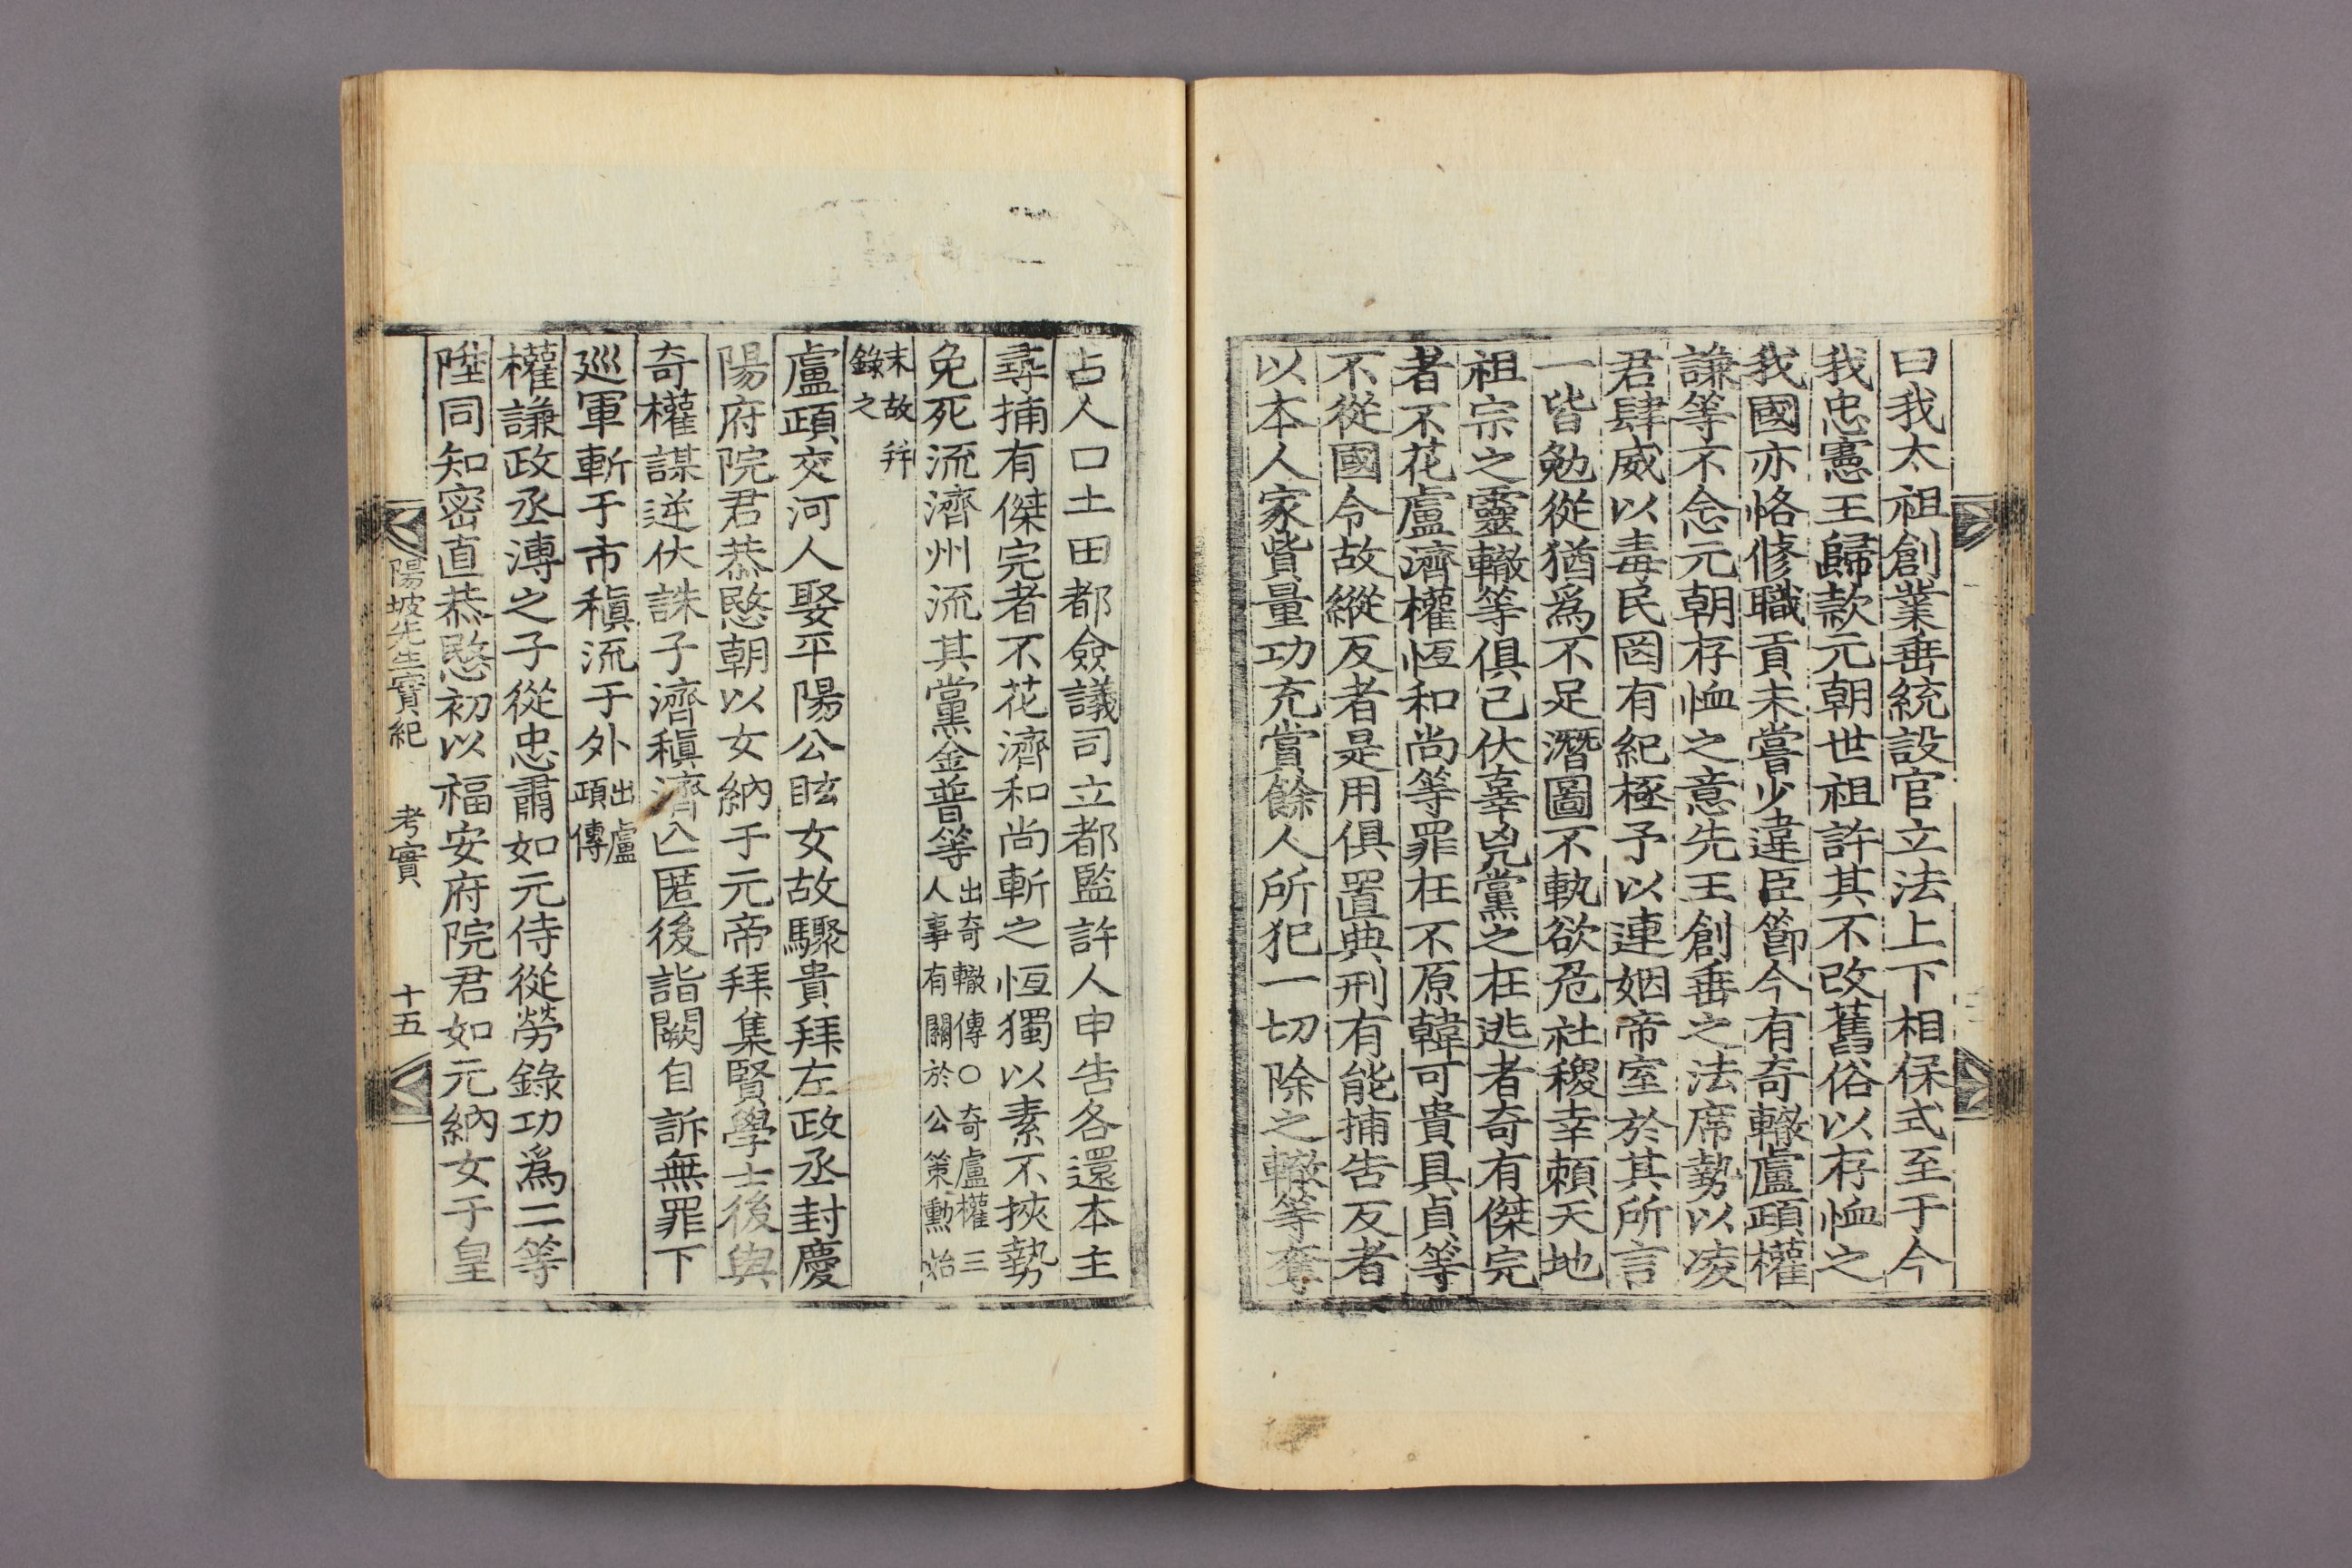 曰我太祖創業垂統設官立法上下相保式至于今
我忠憲王歸款元朝世祖許其不改舊俗以存恤之
我國亦恪修職貢未嘗少違臣節今有奇轍盧頙權
謙等不念元朝存恤之意先王創垂之法席勢以凌
君肆威以毒民罔有紀極予以連姻帝室於其所言
一皆勉從猶爲不足潛圖不軌欲危社稷幸賴天地
祖宗之靈轍等俱已伏辜兇黨之在逃者奇有傑完
者不花盧濟權恆和尚等罪在不原韓可貴具貞等
不從國令故縱反者是用俱置典刑有能捕告反者
以本人家貲量功充賞餘人所犯一切除之轍等奪
占人口土田都僉議司立都監許人申告各還本主
尋捕有傑完者不花濟和尚斬之恆獨以素不挾勢
免死流濟州流其黨金普等出奇轍傳○奇盧權三
人事有關於公策勳始
末故幷
錄之
盧頙交河人娶平陽公昡女故驟貴拜左政丞封慶
陽府院君恭愍朝以女納于元帝拜集賢學士後與
奇權謀逆伏誅子濟稹濟亾匿後詣闕自訴無罪下
巡軍斬于市稹流于外出盧
頙傳
權謙政丞溥之子從忠肅如元侍從勞錄功爲二等
陞同知密直恭愍初以福安府院君如元納女于皇
陽坡先生實紀 考實 十五